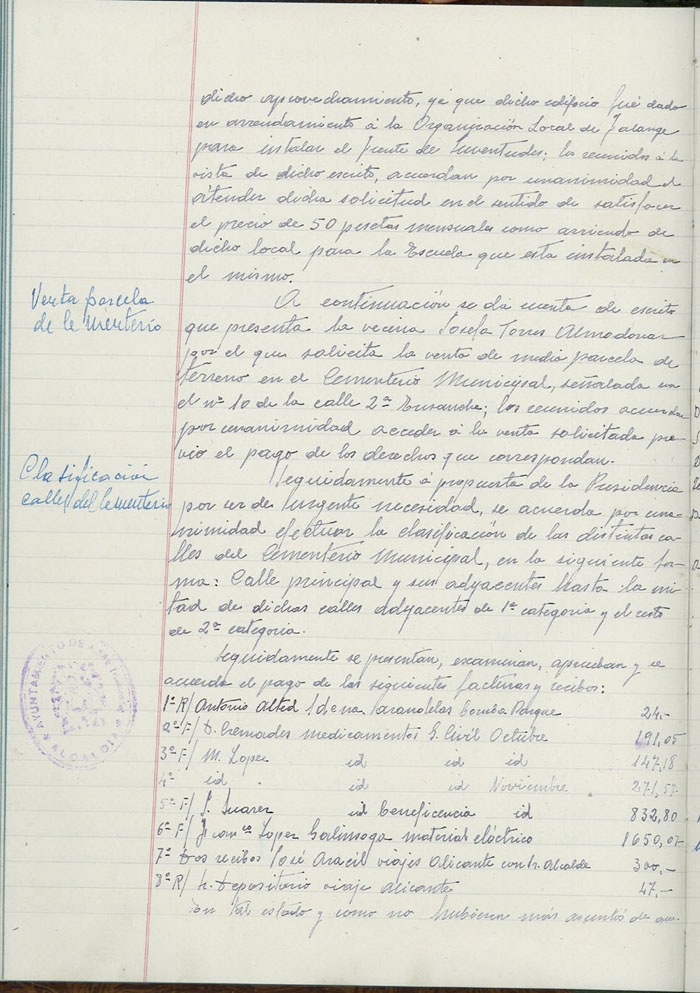 dicho aprovechamiento, ya que dicho edificio fué dado
en arrendamiento á la Organización Local de Falange
para instalar el Frente de Juventudes; los reunidos á la
vista de dicho escrito, acuerdan por unanimidad el
atender dicha solicitud en el sentido de satisfacer
el precio de 50 pesetas mensuales como arriendo de
dicho local para la Escuela que esta instalada en
el mismo.
Venta parcela
de Cementerio
A continuación se da cuenta de escrito
que presenta la vecina Josefa Torres Almodovar
por el que solicita la venta de media parcela de
terreno en el Cementerio Municipal, señalada con
el nº 10 de la calle 2ª Ensanche; los reunidos acuerdan
por unanimidad acceder á la venta solicitada pre-
vio el pago de los derechos que correspondan.
Clasificación
calles del Cementerio
Seguidamente á propuesta de la Presidencia
por ser de urgente necesidad, se acuerda por una-
nimidad efectuar la clasificación de las distintas ca-
lles del Cementerio Municipal, en la siguiente for-
ma: Calle principal y sus adyacentes hasta la mi-
tad de dichas calles adyacentes de 1ª categoria y el resto
de 2ª categoria.
Seguidamente se presentan, examinan, aprueban y se
acuerda el pago de las siguientes facturas y recibos:
1º R/ Antonio Alted Idena aranceles Bomba Parque 24.-
2º F/ D. Cremades medicamentos G. Civil Octubre 191,05
3º F/ M. Lopez id id id 147,18
4º id id id Noviembre 271,57
5º F/ S. Suarez id beneficencia id 832,80
6º F/ Franco Lopez Galinsoga material eléctrico 1650,07
7º Dos recibos José Aracil viajes Alicante con Sr. Alcalde 300.-
8º R/ Sr. Depositario viaje Alicante 47.-
En tal estado y como no hubieran más asuntos de que
AYUNTAMIENTO DE
ALCALDIA